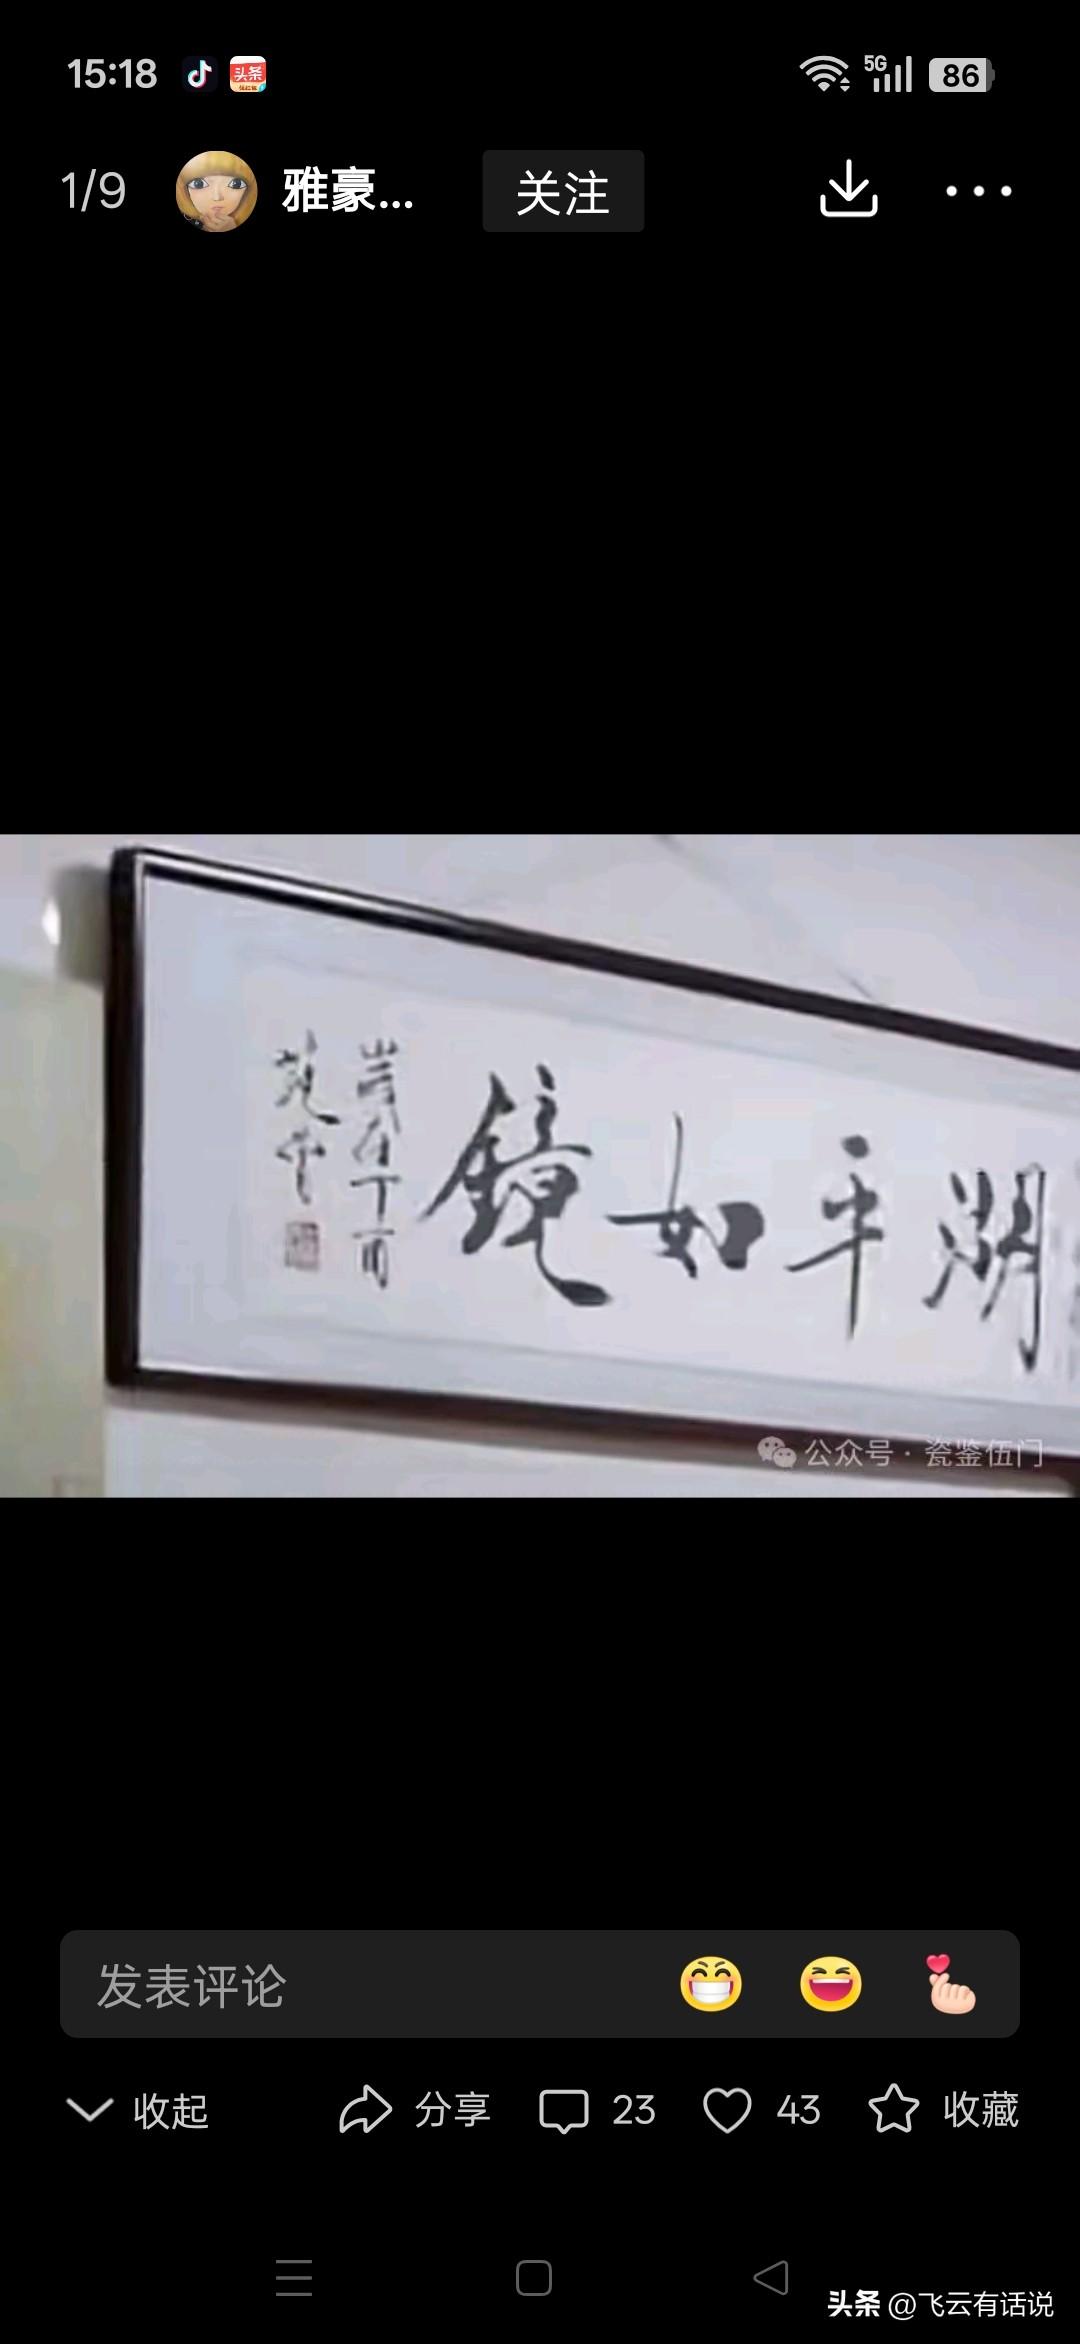 15:18
头条
5G
86
1/9
雅豪...
关注
湖平如镜
岁在丁酉
范曾
公众号·瓷鉴伍门
发表评论
收起
分享
23
43
收藏
头条 @飞云有话说